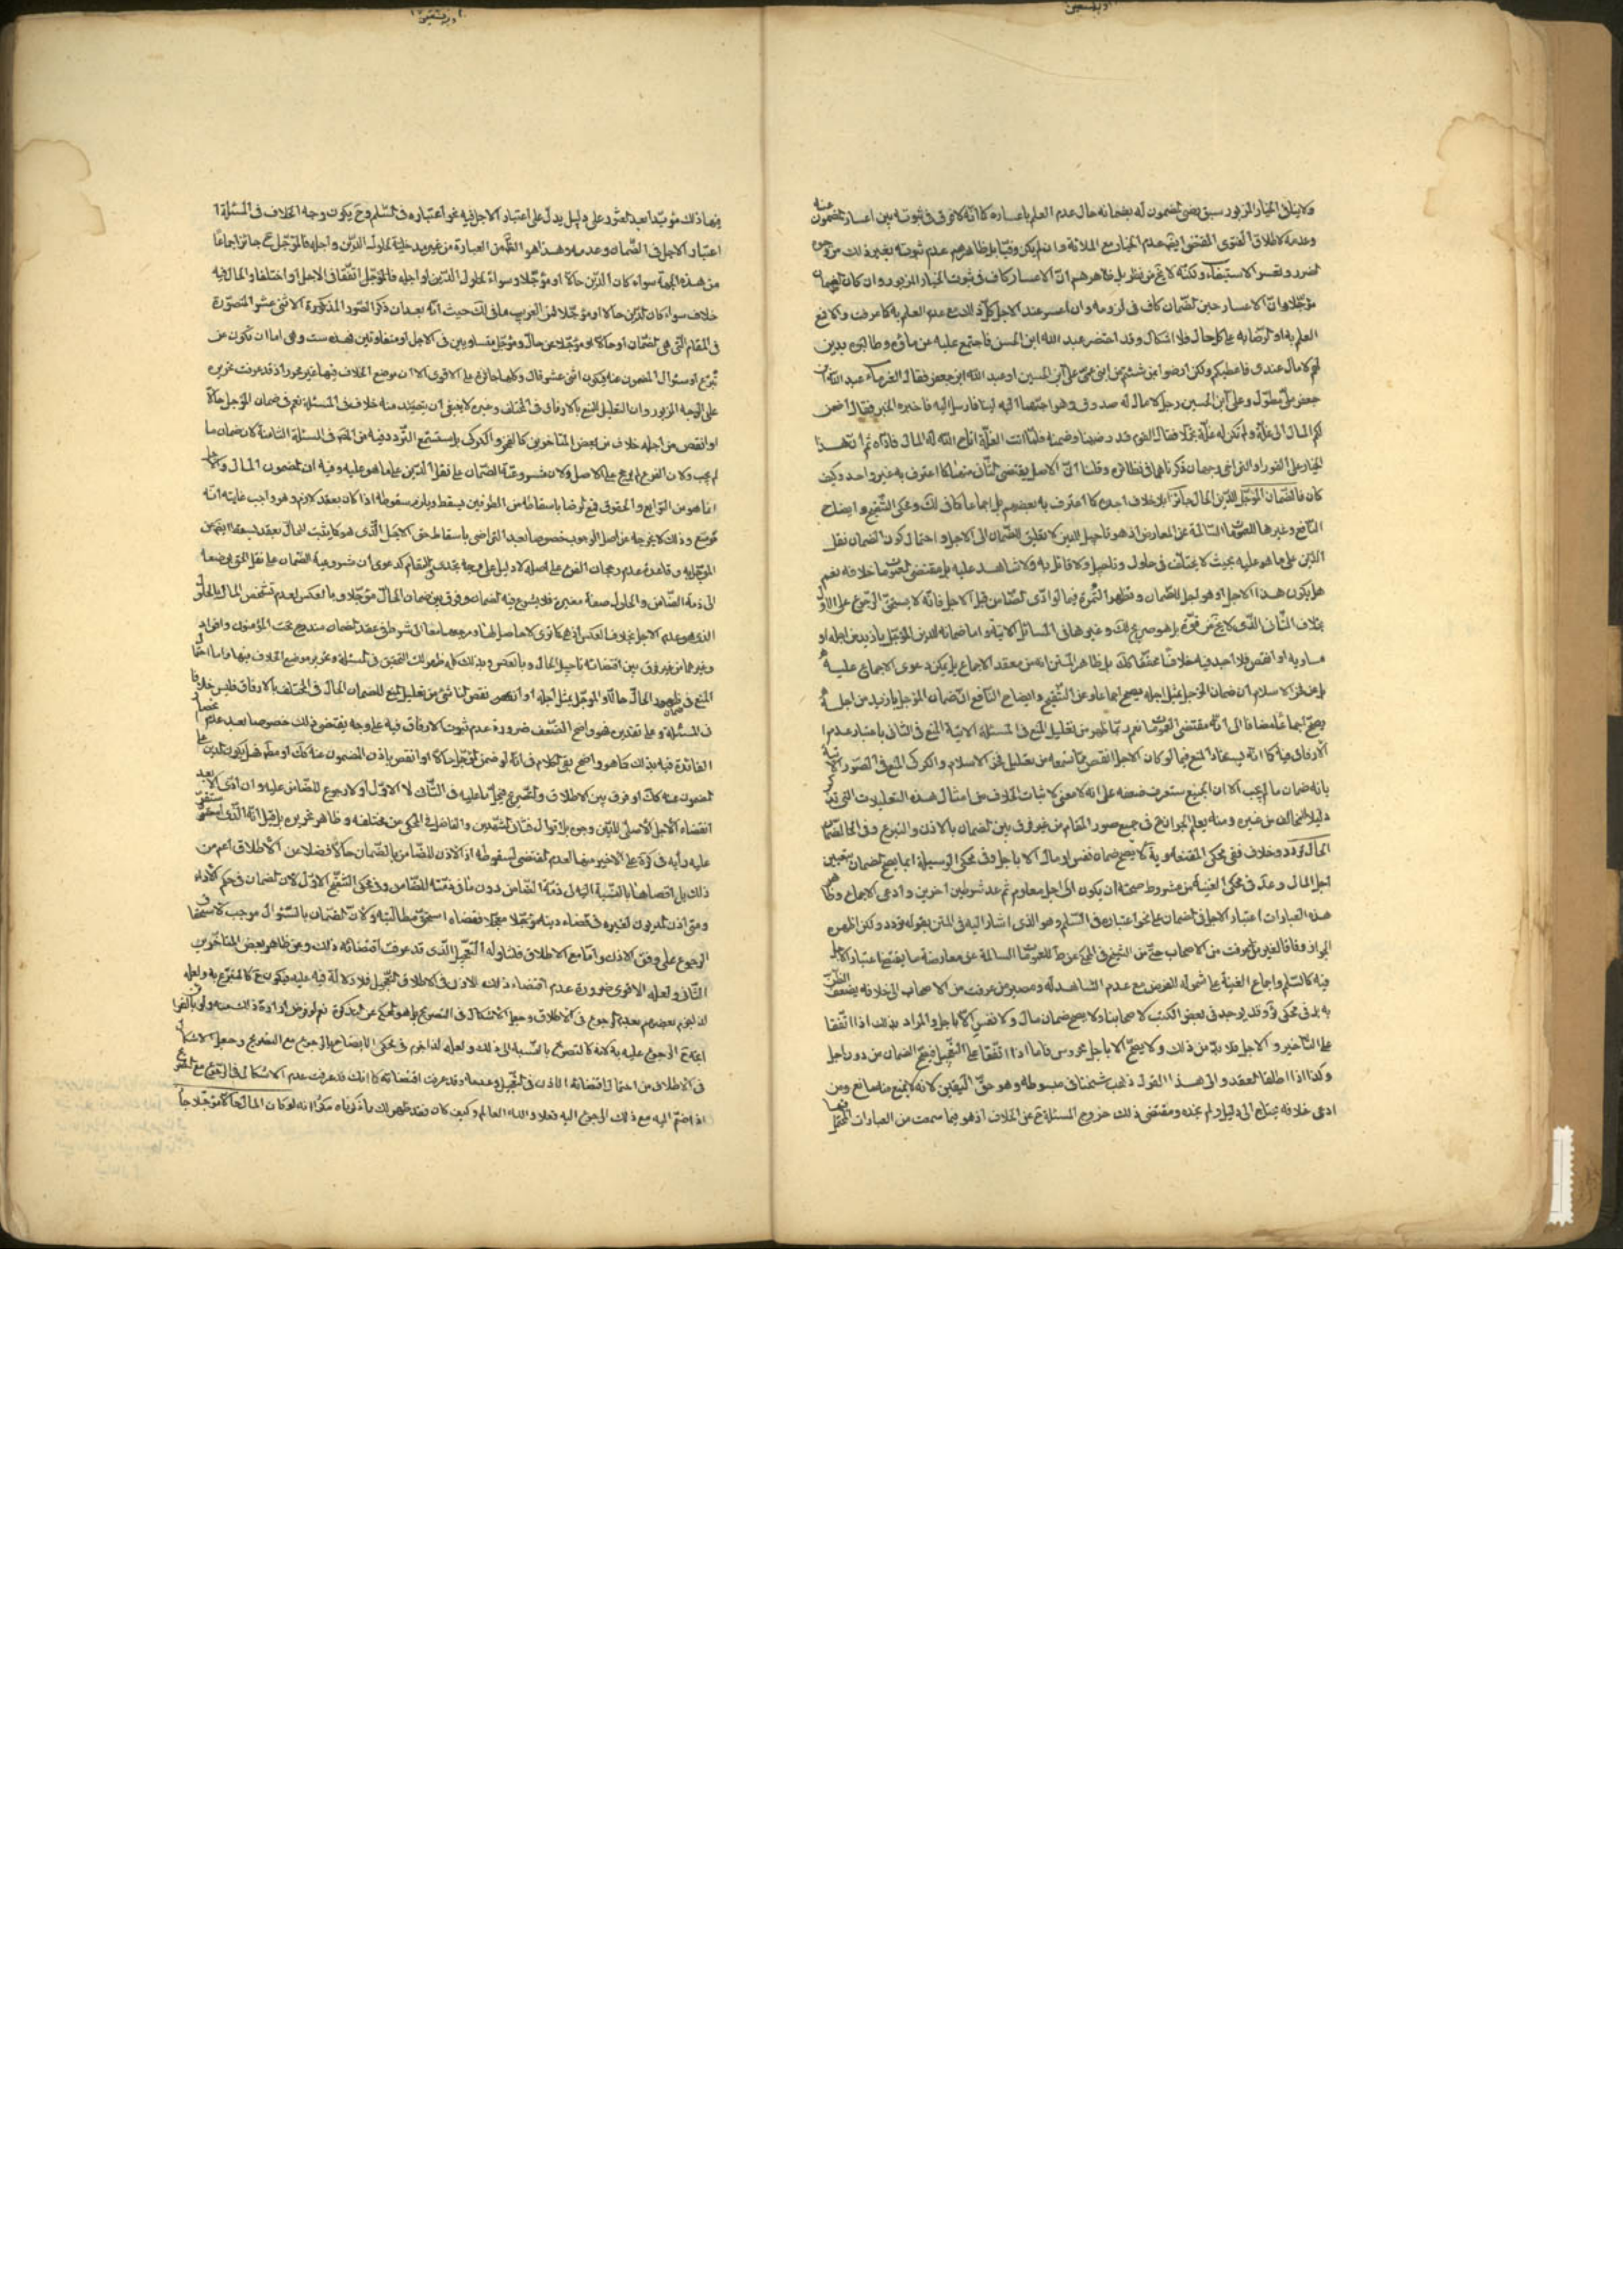 ولا ينافي الخيار المزبور سبق رضى المضمون له بضمانه حال عدم العلم باعساره كما انه لا فرق في ثبوته بين اعسار المضمون عنه
وعدمه لاطلاق الفتوى المقتضى ايضا عدم الخيار مع الملائة وان لم يكن وفيا بل ظاهرهم عدم ثبوته بغير ذلك من وجوه
الضرر وتعسر الاستيفاء ولكنه لا يخ من نظر بل ظاهرهم ان الاعسار كاف في ثبوت الخيار المزبور وان كان
مؤجلا وان الاعسار حين الضمان كاف في لزومه وان اعسر عند الاجل كل ذلك مع عدم العلم به كما عرفت والا فمع
العلم به او الرضا به على كل حال فلا اشكال وقد احتضر عبد الله ابن الحسن فاجتمع عليه غرمائه وطالبوه بدين
لهم لا مال عندي فاعطيكم ولكن ارضوا بمن شئتم من ابني عمي علي ابن الحسين او عبد الله ابن جعفر فقال الغرماء عبد الله ابن
جعفر ملي مطول وعلي ابن الحسين رجل لا مال له صدوق وهو احبهما الينا فارسل اليه فاخبره الخبر فقال اضمن
لكم المال الى غلة ولم تكن له غلة تجملا فقال القوم قد رضينا وضمنه فلما اتت الغلة اتاح الله له المال فاداه ثم ان هذا
الخيار على الفور او التراخي وجهان ذكرناهما في نظائره وقلنا ان الاصل يقتضى الثاني منهما كما اعترف به غير واحد وكيف
كان فالضمان المؤجل للدين الحال جائز بلا خلاف اجده كما اعترف به بعضهم بل اجماعا كما في لك ومحكى التنقيح وايضاح
النافع وغيرها للعمومات السالمة عن المعارض اذ هو تاجيل للدين لا تعليق للضمان الى الاجل واحتمال كون الضمان نقل
الدين على ما هو عليه بحيث لا يختلف في حلول وتاجيل ولا قائل به ولا شاهد عليه بل مقتضى العمومات خلافه نعم
هل يكون هذا الاجل او هو لجل للضمان وتظهر الثمرة فيما لو ادى الضامن قبل الاجل فانه لا يستحق الرجوع على الاول
بخلاف الثاني الذي لا يخ من قوة بل هو صريح لك وغيرها في المسائل الاتية واما ضمانه للدين المؤجل بازيد من اجله او
مساويه او انقص فلا اجد فيه خلافا محققا كك بل ظاهر المتن انه من معقد الاجماع بل يمكن دعوى الاجماع عليه
بل عن فخر الاسلام ان ضمان المؤجل بمثل اجله يصح اجماعا وعن التنقيح وايضاح النافع ان ضمان المؤجل بازيد من اجله
يصح اجماعا مضافا الى انه مقتضى العمومات نعم ربما ظهر من تعليل المنع في المسئلة الاتية المنع في الثاني باعتبار عدم
الارفاق فيه كما انه يستفاد المنع فيما لو كان الاجل انقص مما ستسمعه من تعليل فخر الاسلام والكركي المنع في الصور الاتية
بانه ضمان ما لم يجب الا ان الجميع ستعرف ضعفه على انه لا معنى لاثبات الخلاف من امثال هذه التعليلات التي تذكر
دليلا للمخالف من غيره ومنه يعلم الجواز نصا في جميع صور المقام من غير فرق بين الضمان بالاذن والتبرع وفي الحال
الحال تردد وخلاف ففي محكى المقنعة ويه لا يصح ضمان نفس او مال الا باجل وفي محكى الوسيلة انما يصح الضمان بتعيين
اجل المال وعد في محكى الغنية من شروط صحته ان يكون الى اجل معلوم ثم عد شرطين اخرين وادعى الاجماع وظاهر
هذه العبارات اعتبار الاجل في الضمان على نحو اعتباره في السلم وهو الذي اشار اليه في المتن بقوله تردد ولكن اظهره
الجواز وفاقا لغير من عرفت من الاصحاب حتى من الشيخ في المحكى عن ط للعمومات السالمة عن معارضة ما يقتضى اعتبار الاجل
فيه كالسلم واجماع الغنية على شموله للفرض مع عدم الشاهد له ومصير من عرفت من الاصحاب الى خلافه يضعف الظن
به بل في محكى ئر وقد يوجد في بعض الكتب لاصحابنا ولا يصح ضمان مال ولا نفس الا باجل والمراد بذلك اذا اتفقا
على التاخير والاجل فلا بد من ذلك ولا يصح الا باجل محروس فاما اذا اتفقا على التعجيل فيصح الضمان من دون اجل
وكذا اذا اطلقا العقد والى هذا القول ذهب شيخنا في مبسوطه وهو حق اليقين لانه لا يمنع منه مانع ومن
ادعى خلافه يحتاج الى دليل ولم نجده ومقتضى ذلك خروج المسئلة ح عن الخلاف اذ هو فيما سمعت من العبارات المحتمل فيها
فيها ذلك مؤيدا بعدم العثور على دليل يدل على اعتبار الاجل فيه نحو اعتباره في السلم وح يكون وجه الخلاف في المسئلة
اعتبار الاجل في الضمان وعدمه وهذا هو الظ من العبارة من غير مدخلية لحلول الدين واجله فالمؤجل ح جائز اجماعا
من هذه الجهة سواء كان الدين حالا او مؤجلا وسواء لحلول الدين او اجله فالمؤجل اتفقا في الاجل او اختلفا والحال فيه
خلاف سواء كان الدين حالا او مؤجلا فمن الغريب ما في لك حيث انه بعد ان ذكر الصور المذكورة الاثنى عشر المتصورة
في المقام التي هي الضمان اما حالا او مؤجلا عن حال ومؤجل متساويين في الاجل او متفاوتين فهذه ست وهي اما ان تكون عن
تبرع او سئوال المضمون عنه فيكون اثنى عشر قال وكلها جائز على الاقوى الا ان موضع الخلاف فيها غير محرر اذ قد عرفت تحريره
على الوجه المزبور وان التعليل للمنع بالارفاق في المختلف وغيره لا ينبغي ان يتصيد منه خلاف في المسئلة نعم في ضمان المؤجل حالا
او انقص من اجله خلاف من بعض المتاخرين كالفخر والكركي بل ستسمع التردد فيه من المصنف في المسئلة الثامنة لانه ضمان ما
لم يجب ولان الفرع لا يرجح على الاصل ولان مشروعية الضمان على نقل الدين على ما هو عليه وفيه ان المضمون المال والاجل
انما هو من التوابع والحقوق فمع الرضا باسقاطه من الطرفين يسقط ويلزم سقوطه اذا كان بعقد لازم وهو واجب غايته انه
موسع وذلك لا يخرجه عن اصل الوجوب خصوصا بعد التراضي باسقاط حق الاجل الذي هو كما يثبت للحال بعقد يسقط
المؤجل به وقاعدة عدم رجحان الفرع على اصله لا دليل على وجه يجدى في المقام كدعوى ان مشروعية الضمان على نقل الحق بوصفه
الى ذمة الضامن والحلول صفة معتبرة فلا يشرع فيه الضمان وفرق بين ضمان الحال مؤجلا وبالعكس لعدم تشخص المال بالحلول
الذي هو عدم الاجل بخلاف العكس اذ هي كما ترى لا حاصل لها ومرجعهما معا الى شرط في عقد الضمان مندرج تحت المؤمنون واوفوا
وغيرهما من غير فرق بين اقتضائه تاجيل الحال وبالعكس وبذلك كله ظهر لك التحقيق في المسئلة وتحرير موضع الخلاف فيها واما احتمال
المنع في ضمان الحال حالا او المؤجل بمثل اجله او انقص ناشئ من تعليل المنع للضمان الحال في المختلف بالارفاق فليس خلافا
في المسئلة وعلى تقديره فهو واضح الضعف ضرورة عدم ثبوت الارفاق فيه على وجه يقتضى ذلك خصوصا بعد عدم انحصار
الفائدة فيه بذلك كما هو واضح بقى الكلام في انه لو ضمن المؤجل حالا او انقص باذن المضمون عنه كك او مطلقا فهل يكون الدين على
المضمون عنه كك او فرق بين الاطلاق والتصريح فيحل ما عليه في الثاني لا الاول او لا رجوع للضامن عليه وان ادى الا بعد
انقضاء الاجل الاصلي للدين وجوه بل اقوال فثاني الشهيدين والفاضل في المحكى من مختلفه وظاهر تحريره بل قيل انه الذي استقر
عليه رأيه في كرة على الاخير منها لعدم المقتضى لسقوطه اذ الاذن للضامن بالضمان حالا فضلا عن الاطلاق اعم من
ذلك بل اقصاها بالنسبة اليه في ذمة الضامن دون ما في ذمته للضامن وفي محكى التنقيح الاول لان الضمان في حكم الاداء
ومتى اذن المديون لغيره في قضاء دينه مؤجلا معجلا فقضاه استحق مطالبته ولان الضمان بالسئوال موجب لاستحقاق
الرجوع على وفق الاذن واما مع الاطلاق فلتناوله التعجيل الذي قد عرفت اقتضائه ذلك وعن ظاهر بعض المتاخرين
الثاني ولعله الاقوى ضرورة عدم اقتضاء ذلك للاذن في الاطلاق التعجيل فلا دلالة فيه عليه فيكون ح كالمتبرع به ولعله
لذا جزم بعضهم بعدم الرجوع في الاطلاق وجعل الاشكال في التصريح بل هو المحكى عن التذكرة نعم لو فرض ارادة ذلك منه ولو بالقرائن
اتجه ح الرجوع عليه به لانه كالتصريح بالنسبة الى ذلك ولعله لذا جزم في محكى الايضاح بالرجوع مع التصريح وجعل الاشكال
في الاطلاق من احتمال اقتضائه الاذن في التعجيل وعدمه وقد عرفت اقتضائه كما انك قد عرفت عدم الاشكال في الرجوع مع التصريح
اذا ضم اليه مع ذلك الرجوع اليه فعلا والله العالم وكيف كان فقد ظهر لك ما ذكرناه مكررا انه لو كان المال حالا مؤجلا جاز